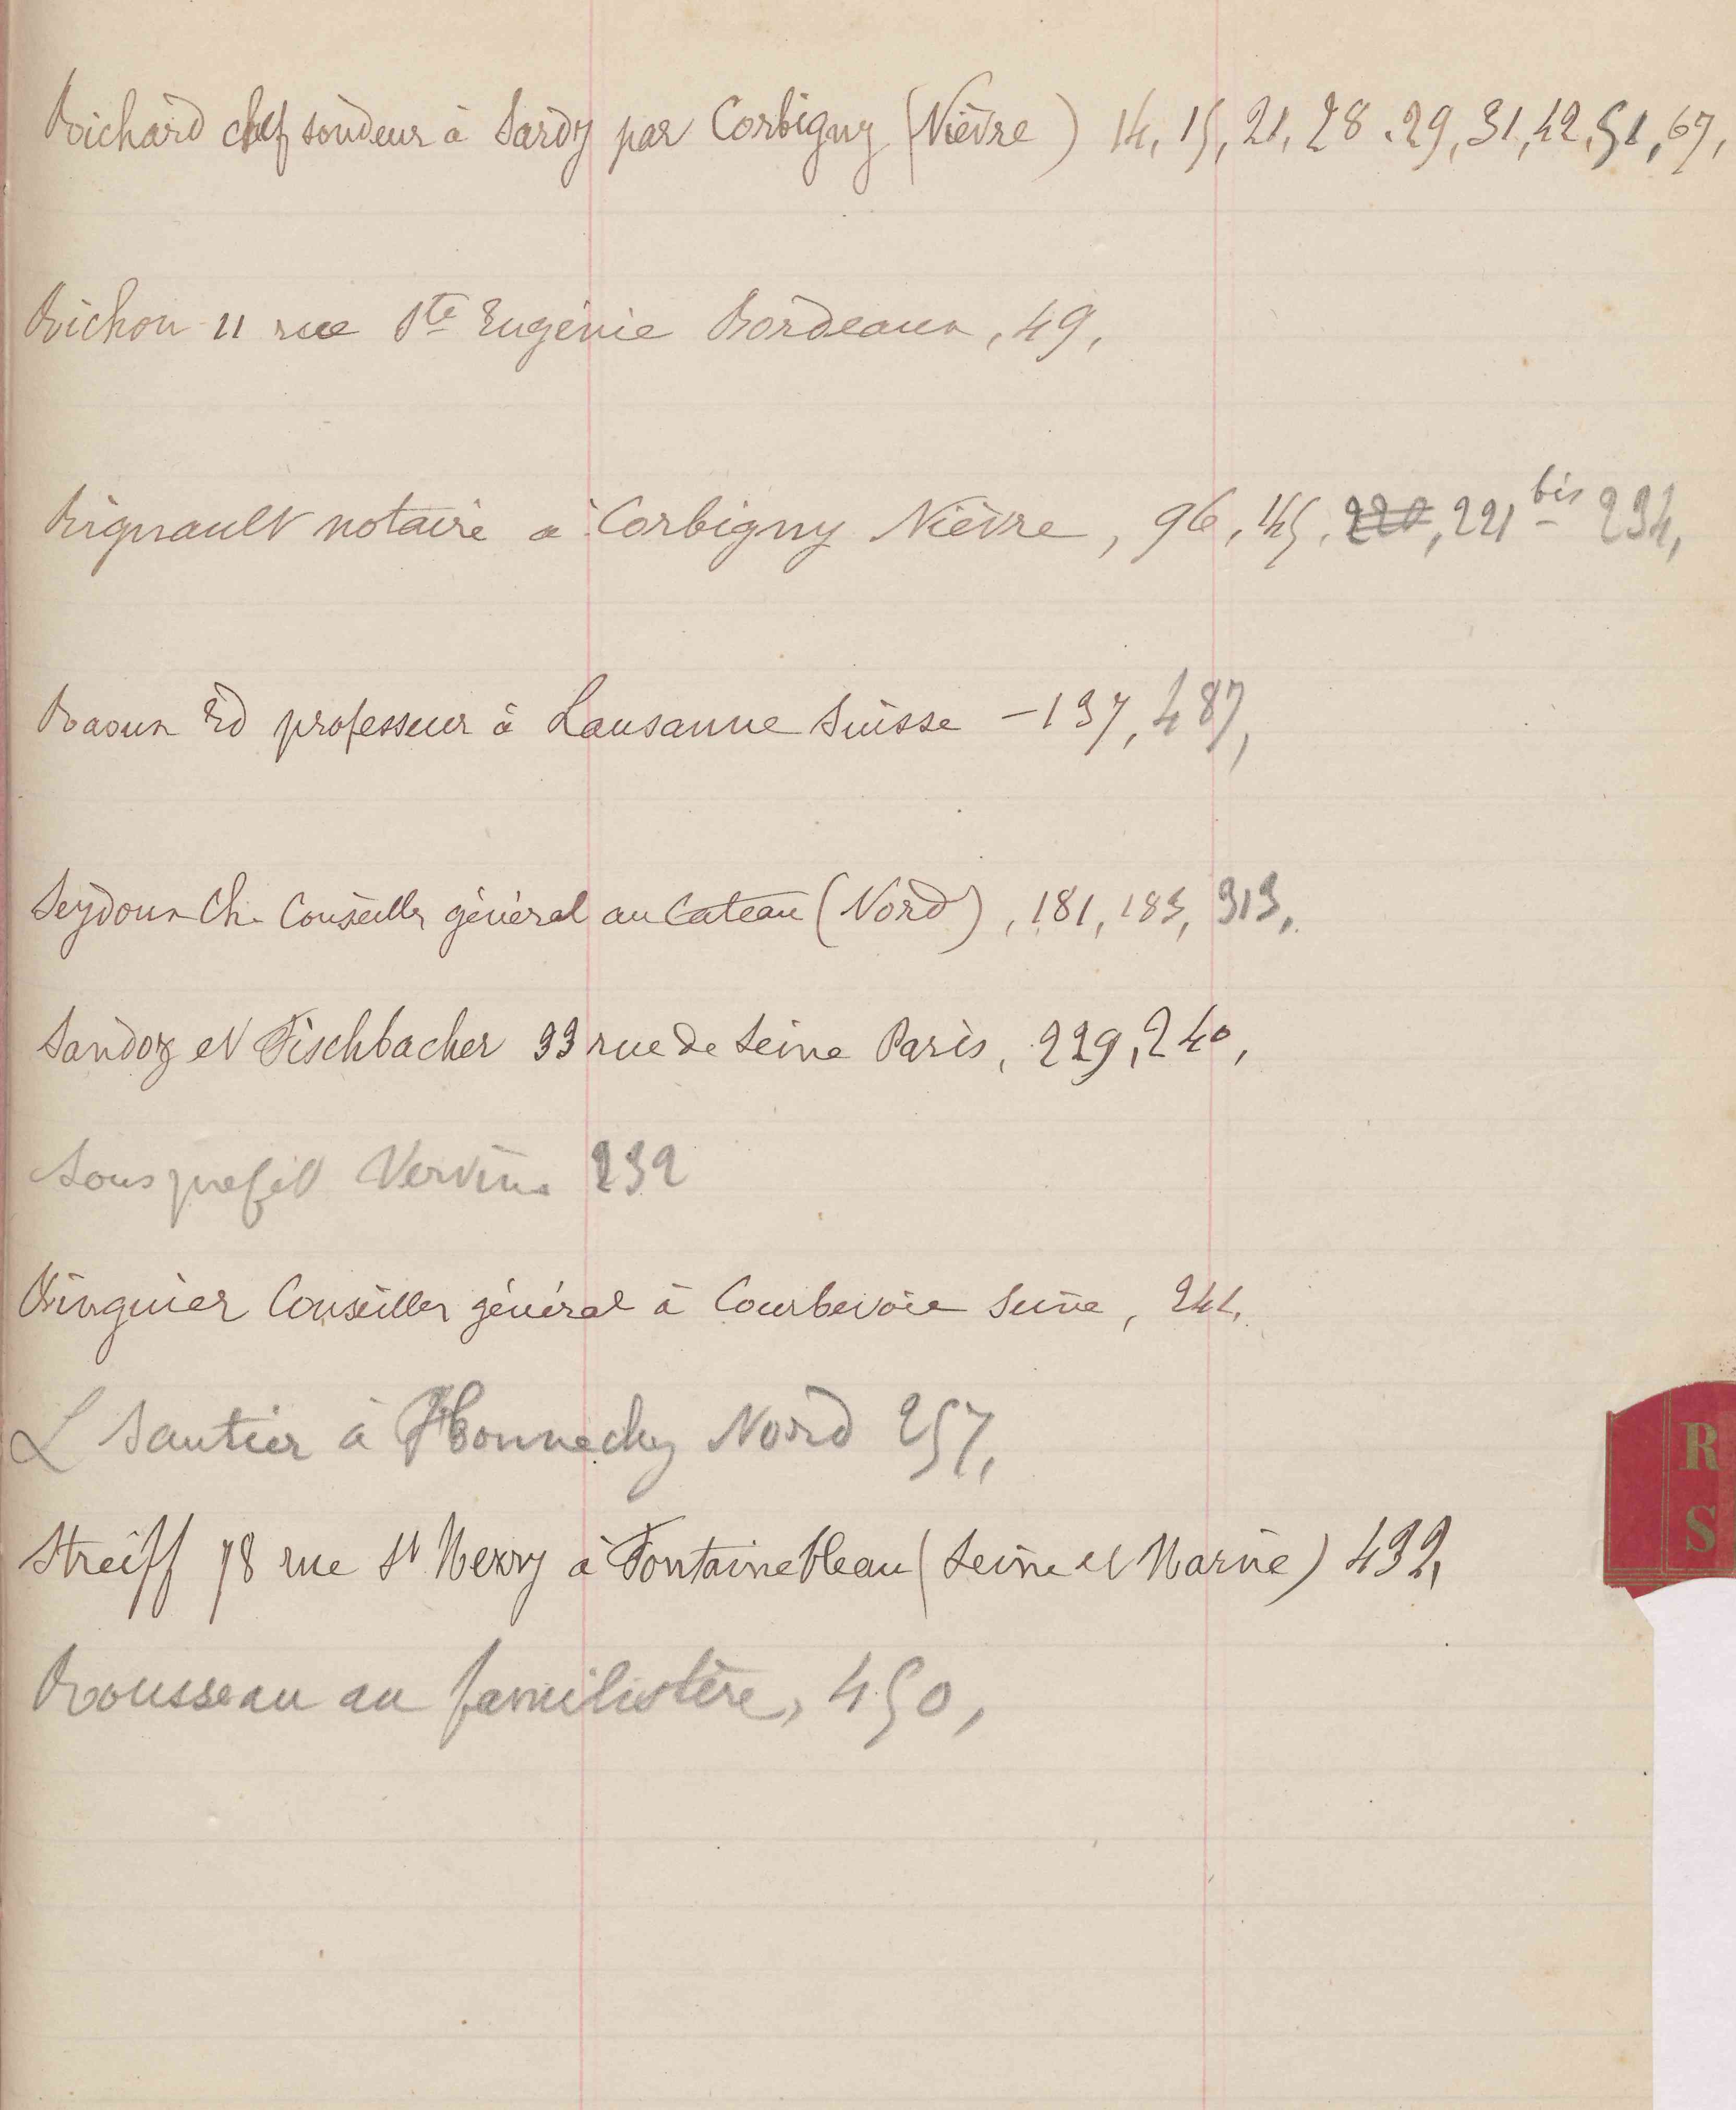 Richard chef sondeur à Sardy par Corbigny (Nièvre) 14, 15, 21, 28, 29, 31, 42, 51, 67,
Richon 11 rue Ste Eugénie Bordeaux, 49,
Rignault notaire à Corbigny Nièvre, 96, 145, 220, 221 bis 234,
Raoux Ed professeur à Lausanne Suisse - 137, 487,
Seydoux Ch. Conseiller général au Cateau (Nord), 181, 183, 313,
Sandoz et Fischbacher 33 rue de Seine Paris, 229, 240,
Sous préfet Vervins 232
Ringuier Conseiller général à Courbevoie Seine, 241,
L Sautier à Honnechy Nord 257,
R
Streiff 78 rue St Merry à Fontainebleau (Seine et Marne) 432,
S
Rousseau au familistère, 450,